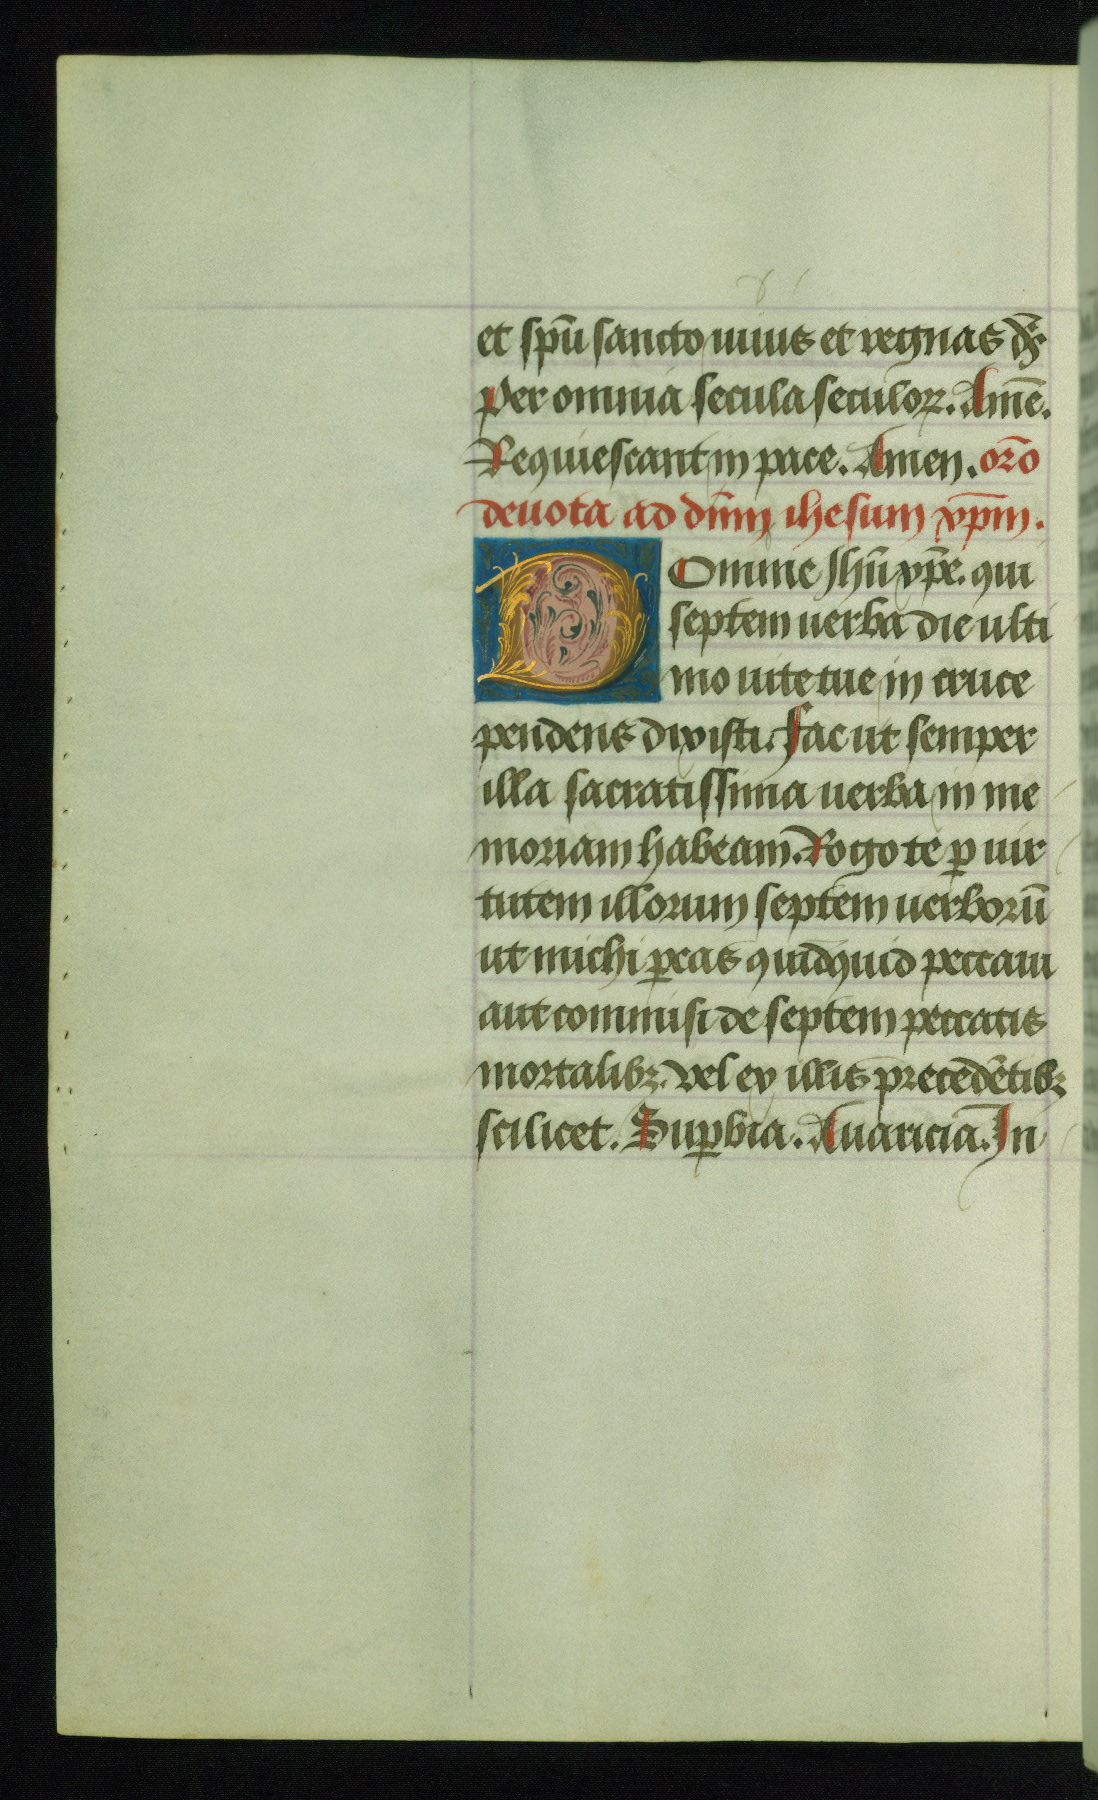 et spū sancto uiuis et regnas ds̄
Per omnia secula seculoꝝ. Amē.
Requiescant in pace. Amen. orō
deuota ad dn̄m ihesum xp̄m.
Domine Jhū xp̄e. qui
septem uerba die ulti
mo uite tue in cruce
pendens dixisti. Fac ut semper
illa sacratissima uerba in me
moriam habeam. Rogo te ꝑ uir
tutem illorum septem uerborū
ut michi ꝑcas quidquid peccaui
aut commisi de septem peccatis
mortalibꝫ. vel ex illis precedētibꝫ
scilicet. Suꝑbia. Auaricia. In